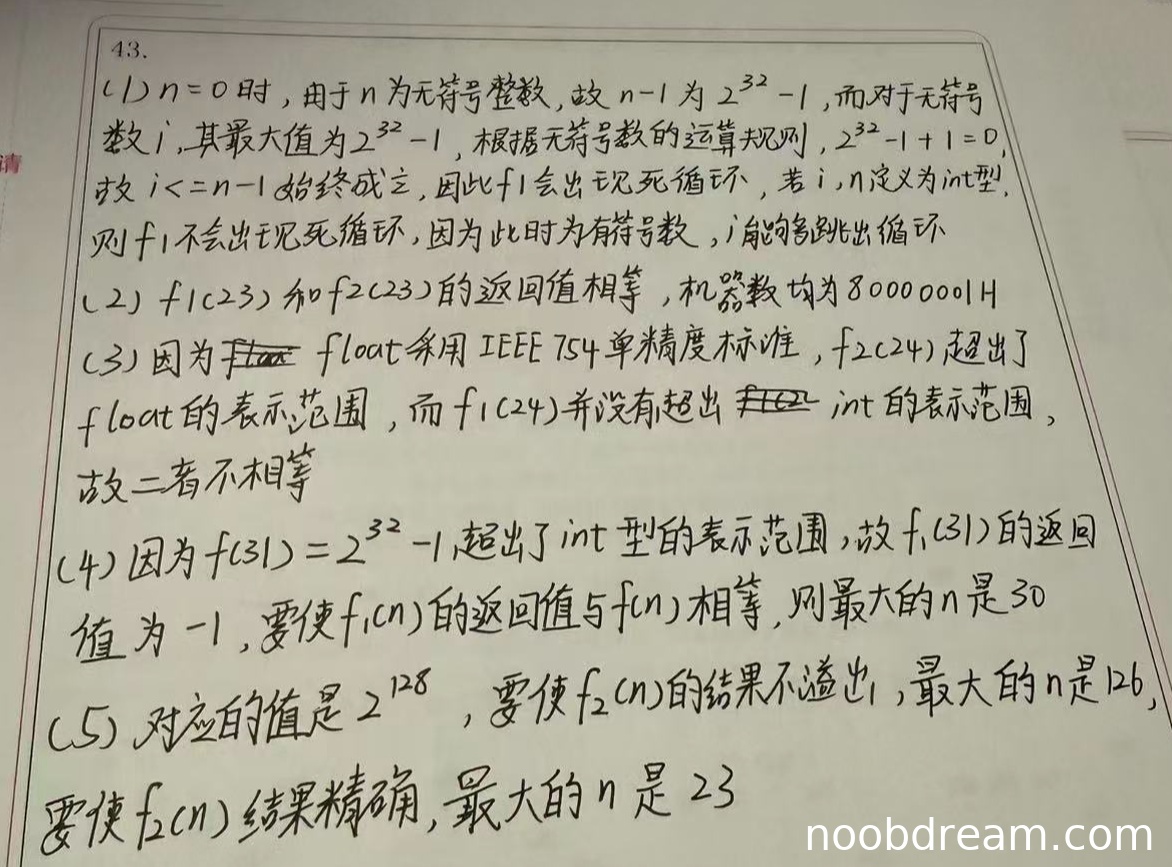 43.
(1) n=0时，由于n为无符号整数，故 n-1 为 2^32 -1，而对于无符号
数i，其最大值为2^32 -1，根据无符号数的运算规则，2^32 -1+1=0，
请
故 i<=n-1 始终成立，因此f1会出现死循环，若i，n定义为int型，
则 f1不会出现死循环，因为此时为有符号数，i能够跳出循环
(2) f1(23) 和 f2(23) 的返回值相等，机器数均为80000001H
(3) 因为 float采用 IEEE 754单精度标准，f2(24)超出了
float的表示范围，而 f1(24)并没有超出 int 的表示范围，
故二者不相等
(4) 因为 f(31) = 2^32 -1超出了int 型的表示范围，故 f1(31) 的返回
值为 -1，要使f1(n)的返回值与f(n)相等，则最大的n是30
(5) 对应的值是 2^128，要使 f2(n)的结果不溢出，最大的n是126，
要使f2(n)结果精确，最大的 n 是 23
noobdream.com